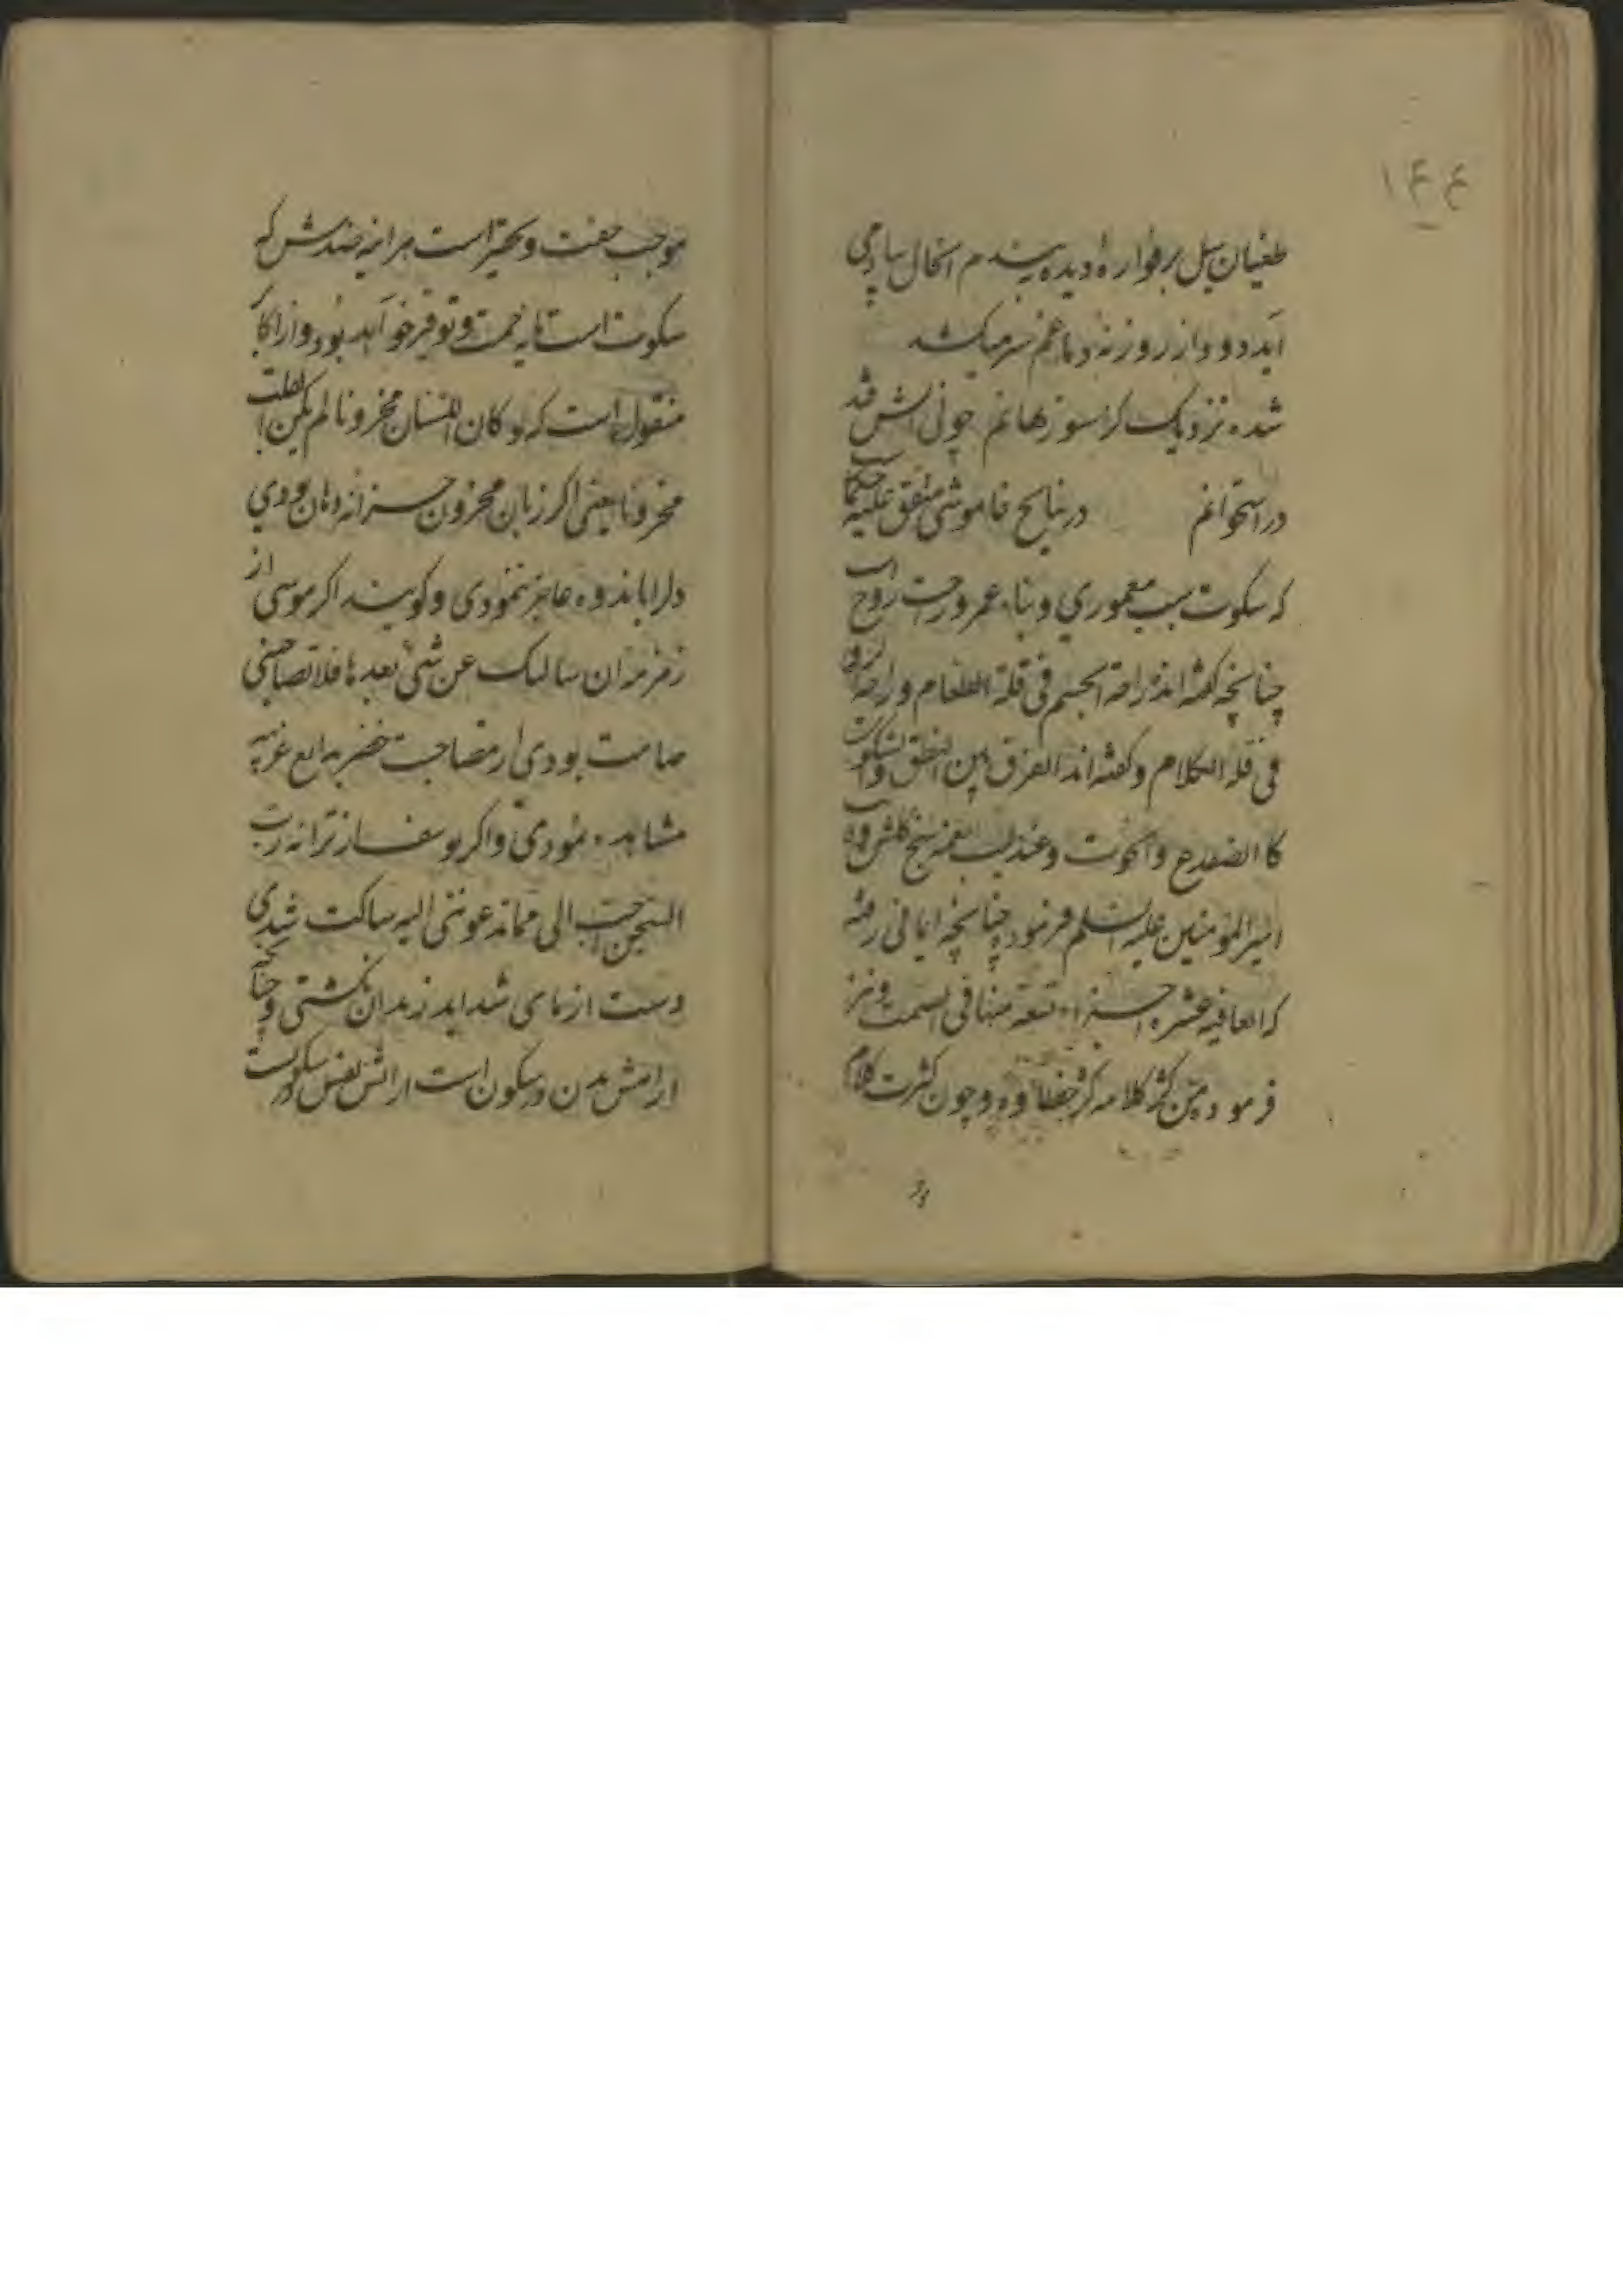 ۱۴۴
طغیان سیل بر فواره دیده بیندم انحال بیاد می
آید دود از روزنه دماغم سر میکشد
شده نزدیک کز سوز نهانم چونی آتش فتد
در استخوانم در نتایج خاموشی متفق علیه حکماست
که سکوت سبب معموری و بناء عمر و راحت روح است
چنانچه گفته اند راحة الجسم فی قلة الطعام و راحة الروح
فی قلة الکلام و گفته اند الفرق بین النطق والسکوت
کا الضفدع والحوت و عندلیب نغمه سنج گلشن
امیر المؤمنین علیه السلم فرمود چنانچه ایمائی رفته
که العافیه عشره اجزاء تسعة منها فی السمت و نیز
فرموده من کثر کلامه کثر خطاؤه و چون کثرت کلام
موجب خفت و تحقیر است هر اینه ضدش که
سکوت است مایه فخمت و توقیر خواهد بود و از اکابر
منقول است که لو کان اللسان مخزونا لم یکن القلب
مخزونا یعنی اگر زبان مخزون خزانه دهان بودی
دلرا باندوه عاجز ننمودی و گویند اگر موسی از
زمزمه ان سالتک عن شیٔ بعدها فلا تصاحبنی
صامت بودی از مصاحبت خضر بدایع غریبه
مشاهده نمودی و اگر یوسف از ترانه رب
السجن احب الی مما تدعوننی الیه ساکت شدی
دست ازمای شداید زندان نگشتی و چنانکه
ارامش بدن در سکون است ارامش نفس در سکوتست